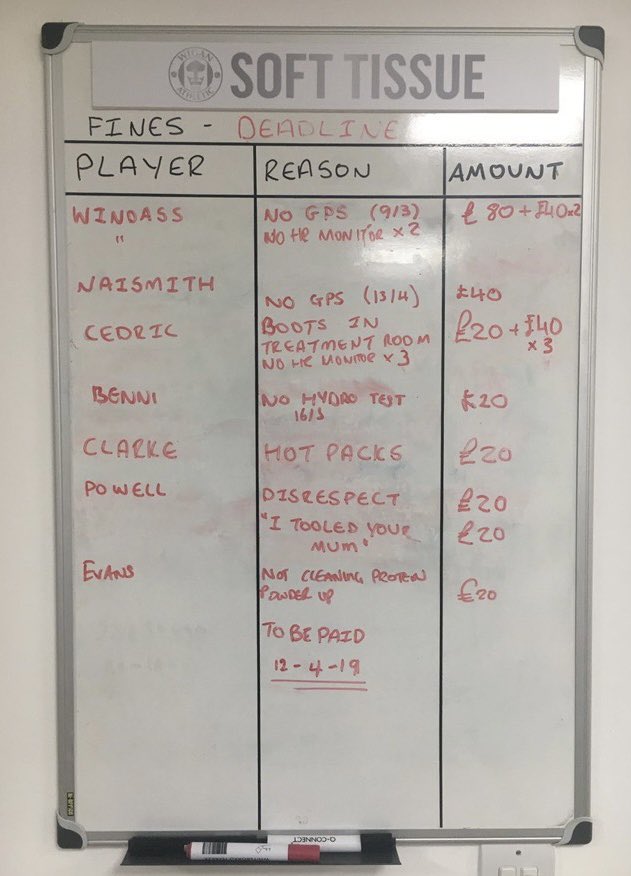 WIGAN ATHLETIC
SOFT TISSUE
FINES - DEADLINE
PLAYER REASON AMOUNT
WINDASS NO GPS (9/3) £80 + £40 x2
" NO HR MONITOR x2
NAISMITH
NO GPS (13/4) £40
CEDRIC BOOTS IN £20 + £40
TREATMENT ROOM x3
NO HR MONITOR x3
BENNI NO HYDRO TEST £20
16/3
CLARKE HOT PACKS £20
POWELL DISRESPECT £20
"I TOOLED YOUR £20
MUM"
EVANS NOT CLEANING PROTEIN
POWDER UP £20
TO BE PAID
12-4-19
Q-CONNECT